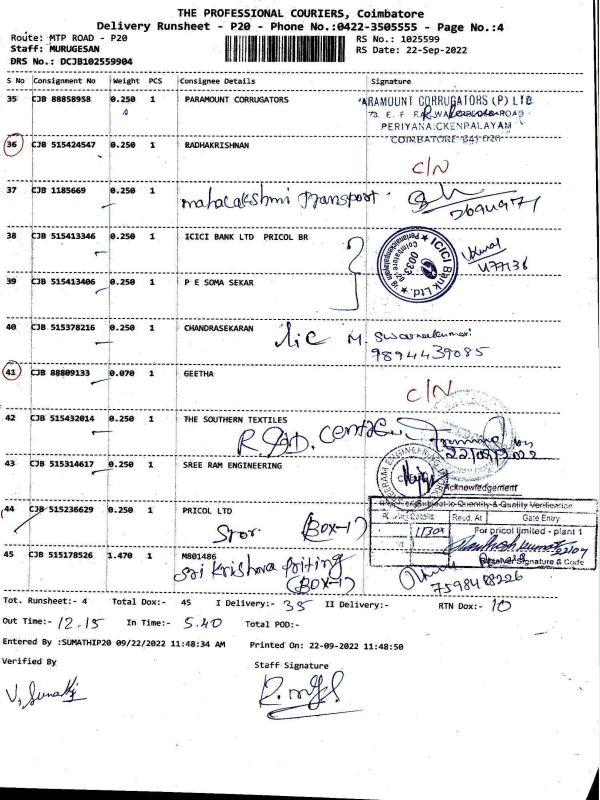 THE PROFESSIONAL COURIERS, Coimbatore
Delivery Runsheet - P20 - Phone No.:0422-3505555 - Page No.:4
Route: MTP ROAD - P20 RS No.: 1025599
Staff: MURUGESAN RS Date: 22-Sep-2022
DRS No.: DCJB102559904
S No Consignment No Weight PCS Consignee Details Signature
35 CJB 88858958 0.250 1 PARAMOUNT CORRUGATORS
PARAMOUNT CORRUGATORS (P) LTD
PERIYANAICKENPALAYAM
36 CJB 515424547 0.250 1 RADHAKRISHNAN
C/N
37 CJB 1185669 0.250 1 mahalakshmi Transport
38 CJB 515413346 0.250 1 ICICI BANK LTD PRICOL BR
ICICI Bank Ltd.
Coimbatore
0033
39 CJB 515413406 0.250 1 P E SOMA SEKAR
40 CJB 515378216 0.250 1 CHANDRASEKARAN lic M. Swarnakumari
9894439085
41 CJB 88809133 0.070 1 GEETHA
C/N
42 CJB 515432014 0.250 1 THE SOUTHERN TEXTILES
22/09/2022
43 CJB 515314617 0.250 1 SREE RAM ENGINEERING
Acknowledgement
Subject to Quantity & Quality Verification
44 CJB 515236629 0.250 1 PRICOL LTD
Recd. At Gate Entry
Stor (BOX-1) 1130A For pricol limited - plant 1
Receiver Signature & Code
45 CJB 515178526 1.470 1 M801486
Sri Krishna Priting
(BOX-1) 7598488226
Tot. Runsheet:- 4 Total Dox:- 45 I Delivery:- 35 II Delivery:- RTN Dox:- 10
Out Time:- 12.15 In Time:- 5.40 Total POD:-
Entered By :SUMATHIP20 09/22/2022 11:48:34 AM Printed On: 22-09-2022 11:48:50
Verified By Staff Signature